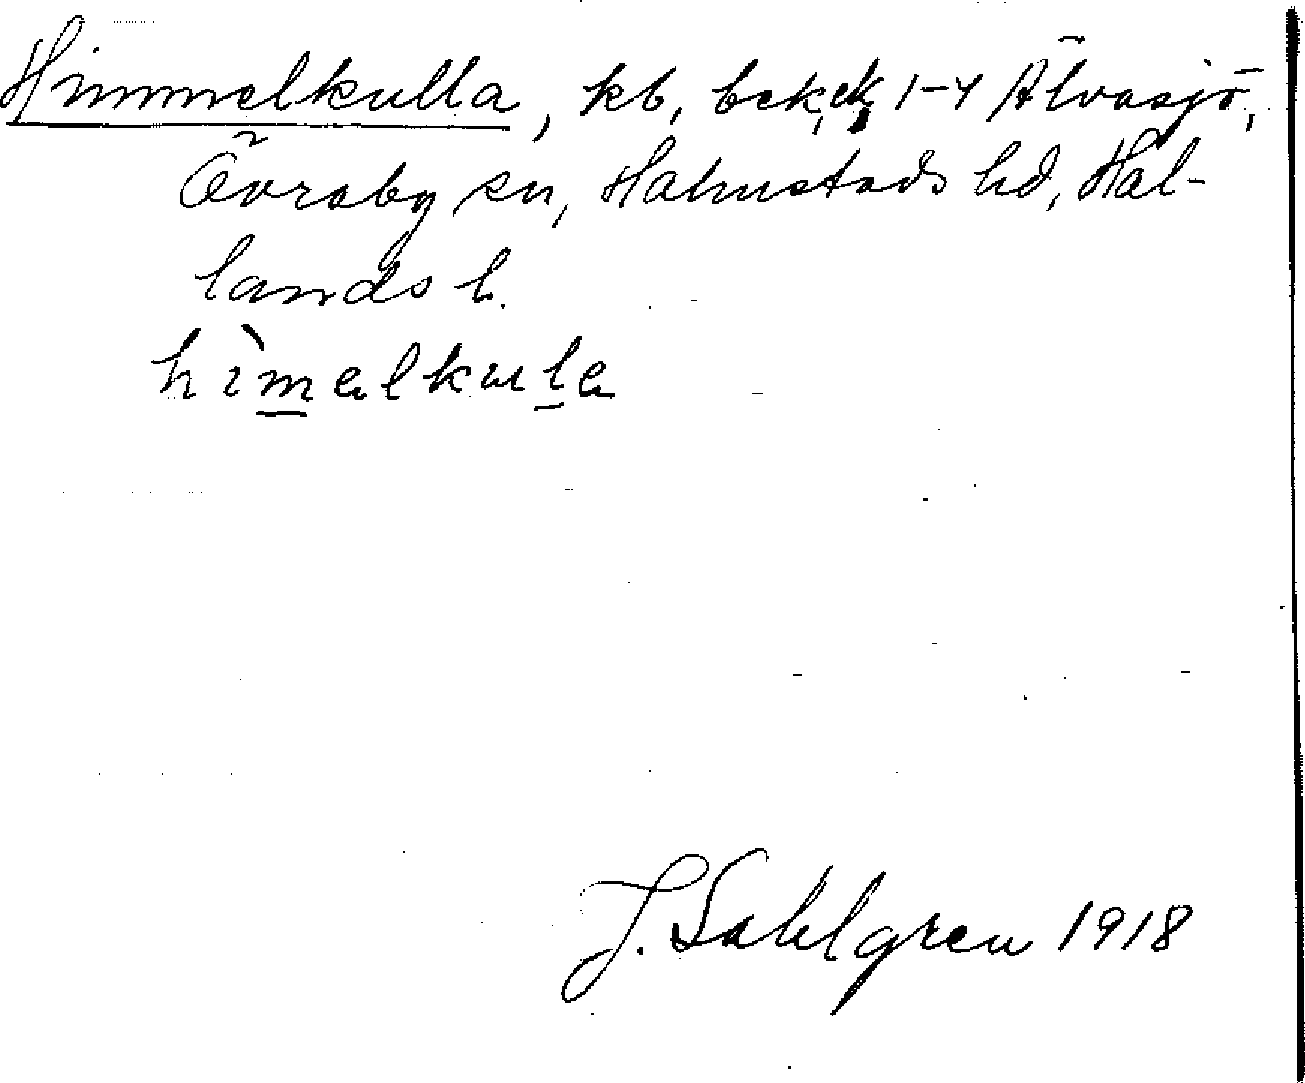 Himmelkulla, kb, bek, ek, 1-4 Älvasjö,
Övraby sn, Halmstads hd, Hal-
lands l.
hìmalkula
J. Sahlgren 1918